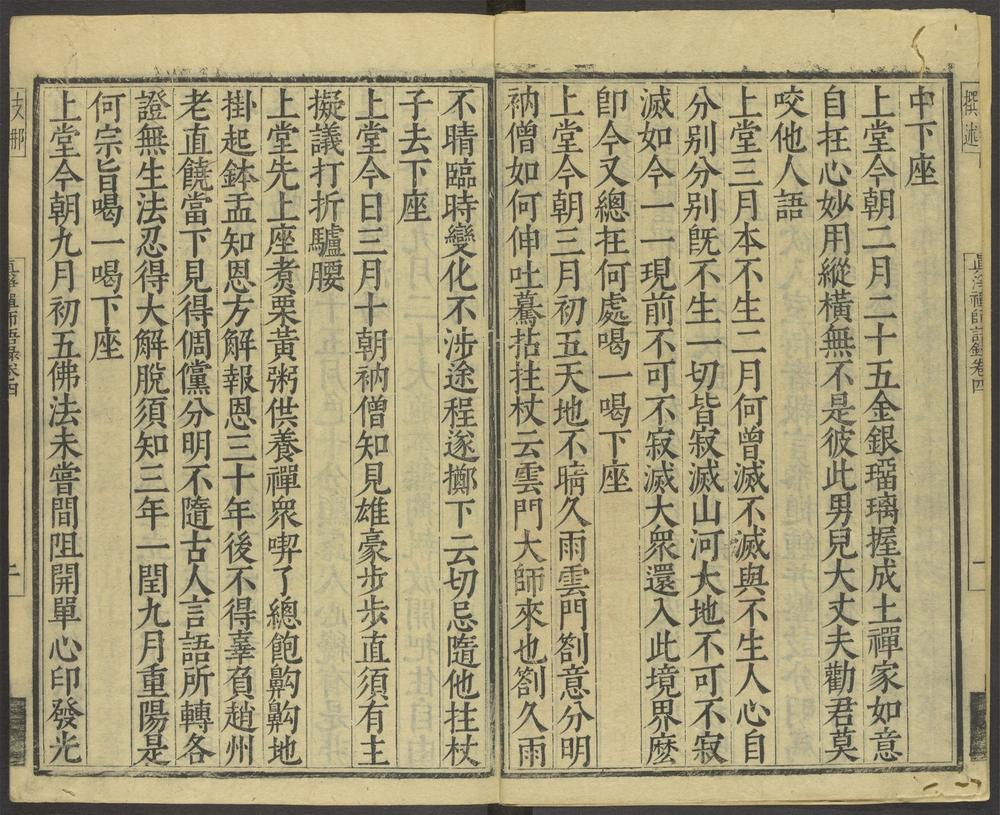 撰述
眞淨禪師語錄卷四
一
中下座
上堂今朝二月二十五金銀瑠璃握成土禪家如意
自在心妙用縱橫無不是彼此男兒大丈夫勸君莫
咬他人語
上堂三月本不生二月何曾滅不滅與不生人心自
分别分别旣不生一切皆寂滅山河大地不可不寂
滅如今一一現前不可不寂滅大衆還入此境界麽
卽今又總在何處喝一喝下座
上堂今朝三月初五天地不晴久雨雲門劄意分明
衲僧如何伸吐驀拈拄杖云雲門大師來也劄久雨
不晴臨時變化不涉途程遂擲下云切忌隨他拄杖
子去下座
上堂今日三月十朝衲僧知見雄豪步步直須有主
擬議打折驢腰
上堂先上座煑栗黃粥供養禪衆喫了總飽齁齁地
掛起鉢盂知恩方解報恩三十年後不得辜負趙州
老直饒當下見得倜儻分明不隨古人言語所轉各
證無生法忍得大解脫須知三年一閏九月重陽是
何宗旨喝一喝下座
上堂今朝九月初五佛法未嘗間阻開單心印發光
眞淨禪師語錄卷四
二